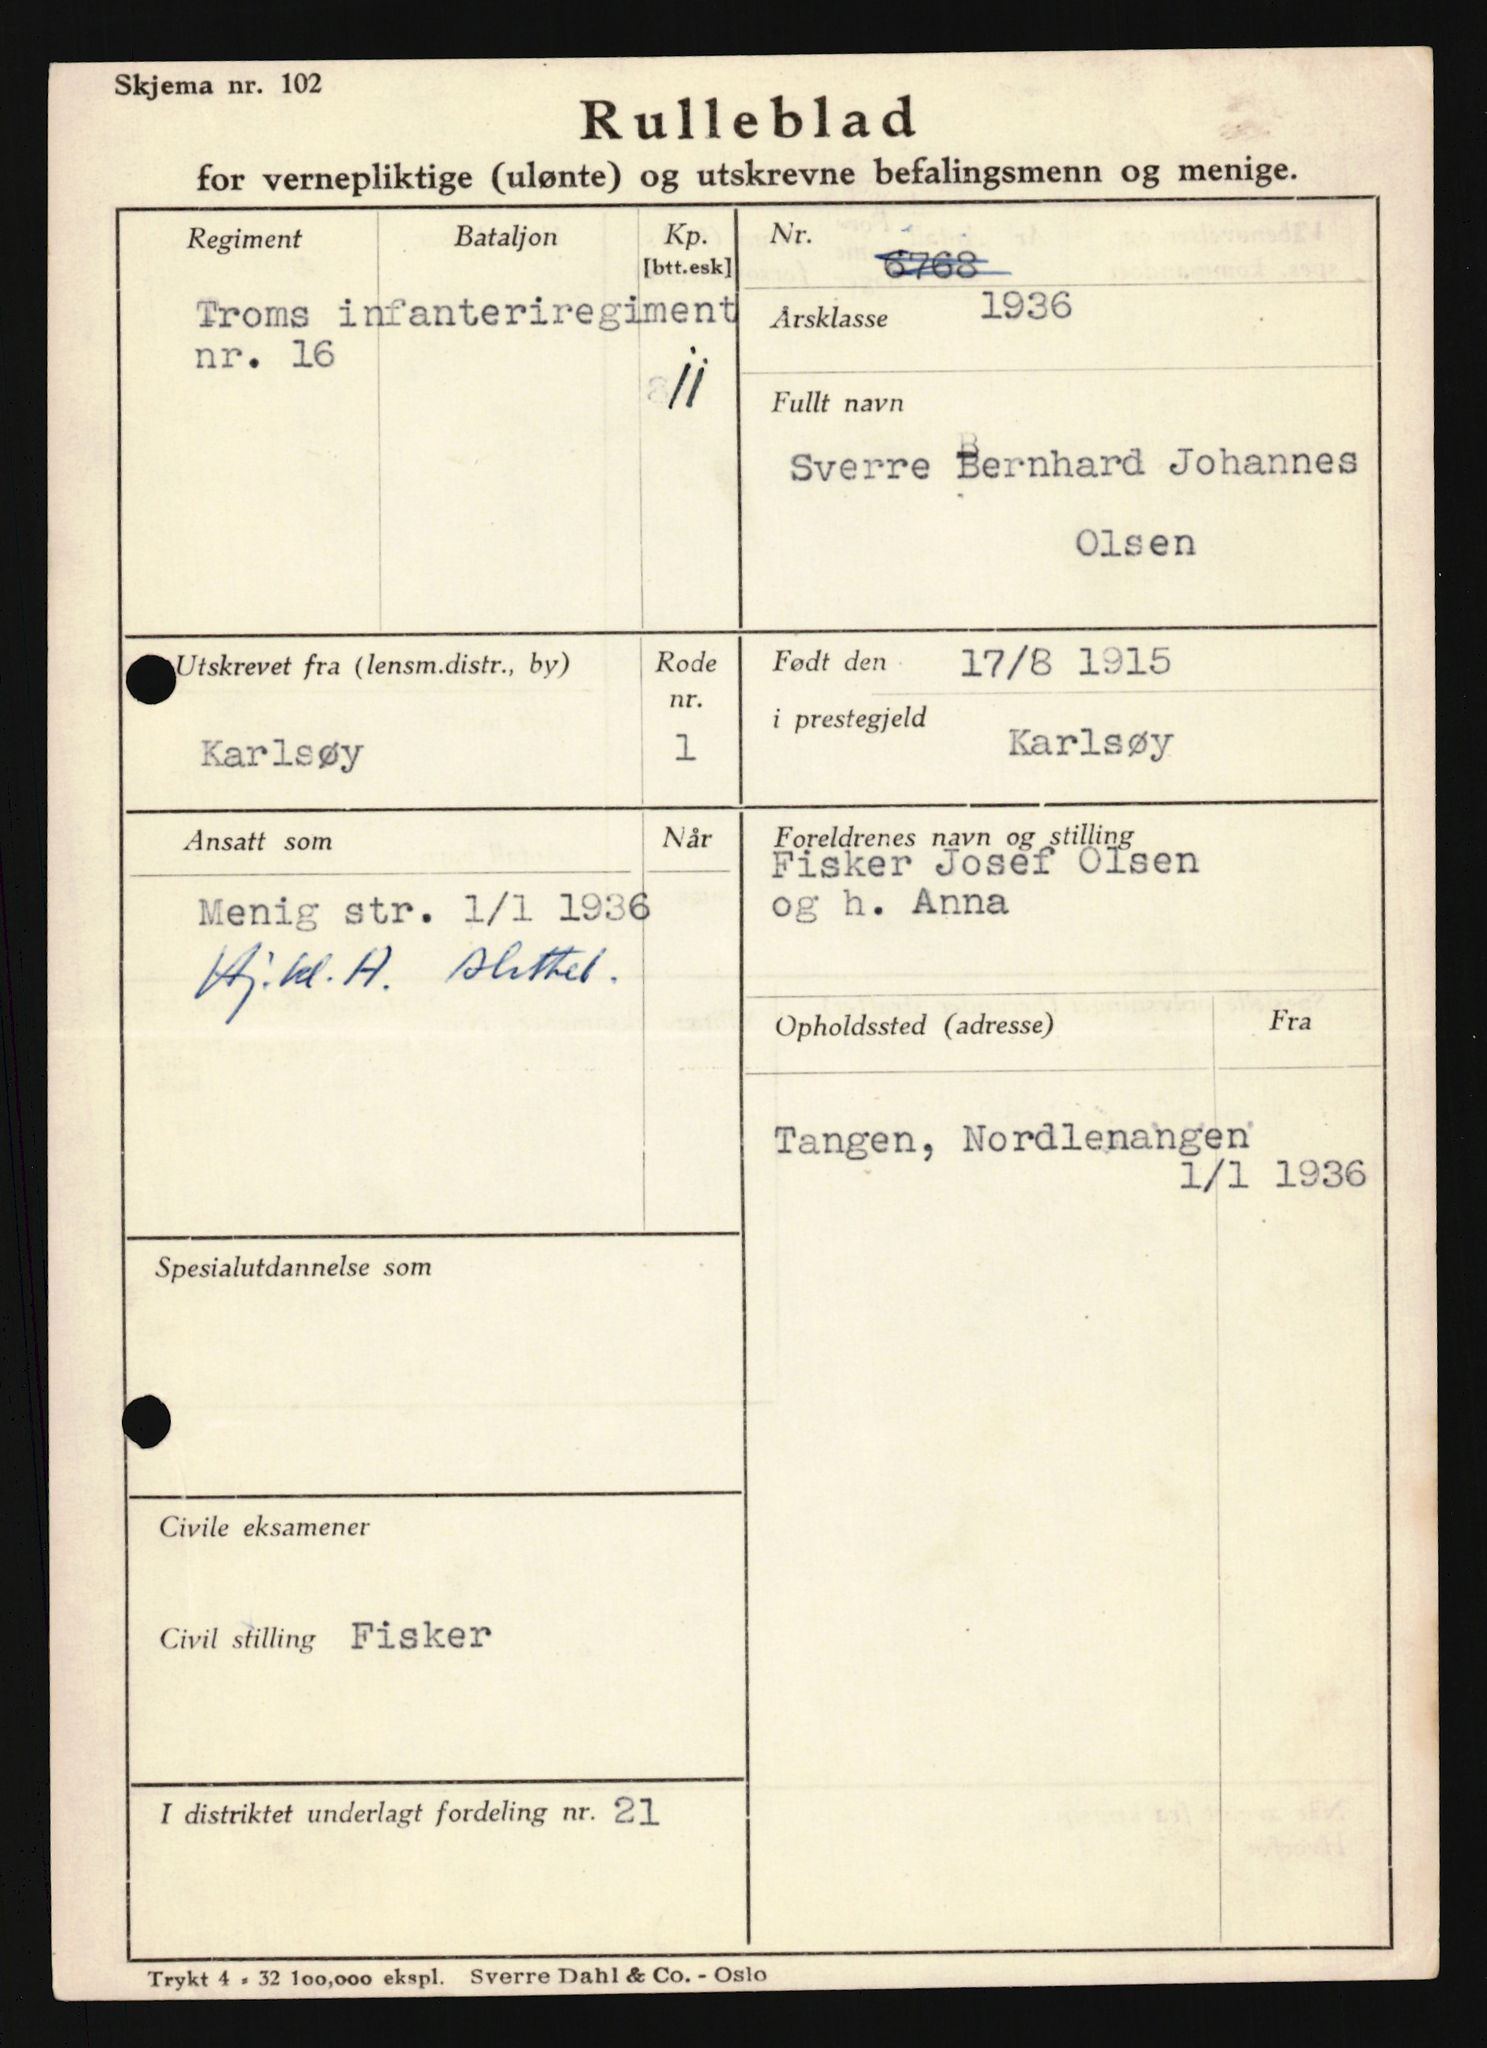 Skjema nr. 102
Rulleblad
for vernepliktige (ulønte) og utskrevne befalingsmenn og menige.
Regiment
Bataljon
Kp.
[btt.esk]
Troms infanteriregiment
nr. 16
11
Nr.
6768
Årsklasse 1936
Fullt navn
Sverre Bernhard Johannes
Olsen
Utskrevet fra (lensm.distr., by)
Rode
nr.
Karlsøy
1
Født den 17/8 1915
i prestegjeld
Karlsøy
Ansatt som
Når
Menig str. 1/1 1936
Hj.kl. A.
Foreldrenes navn og stilling
Fisker Josef Olsen
og h. Anna
Opholdssted (adresse)
Fra
Tangen, Nordlenangen
1/1 1936
Spesialutdannelse som
Civile eksamener
Civil stilling Fisker
I distriktet underlagt fordeling nr. 21
Trykt 4 - 32 100,000 ekspl. Sverre Dahl & Co. - Oslo